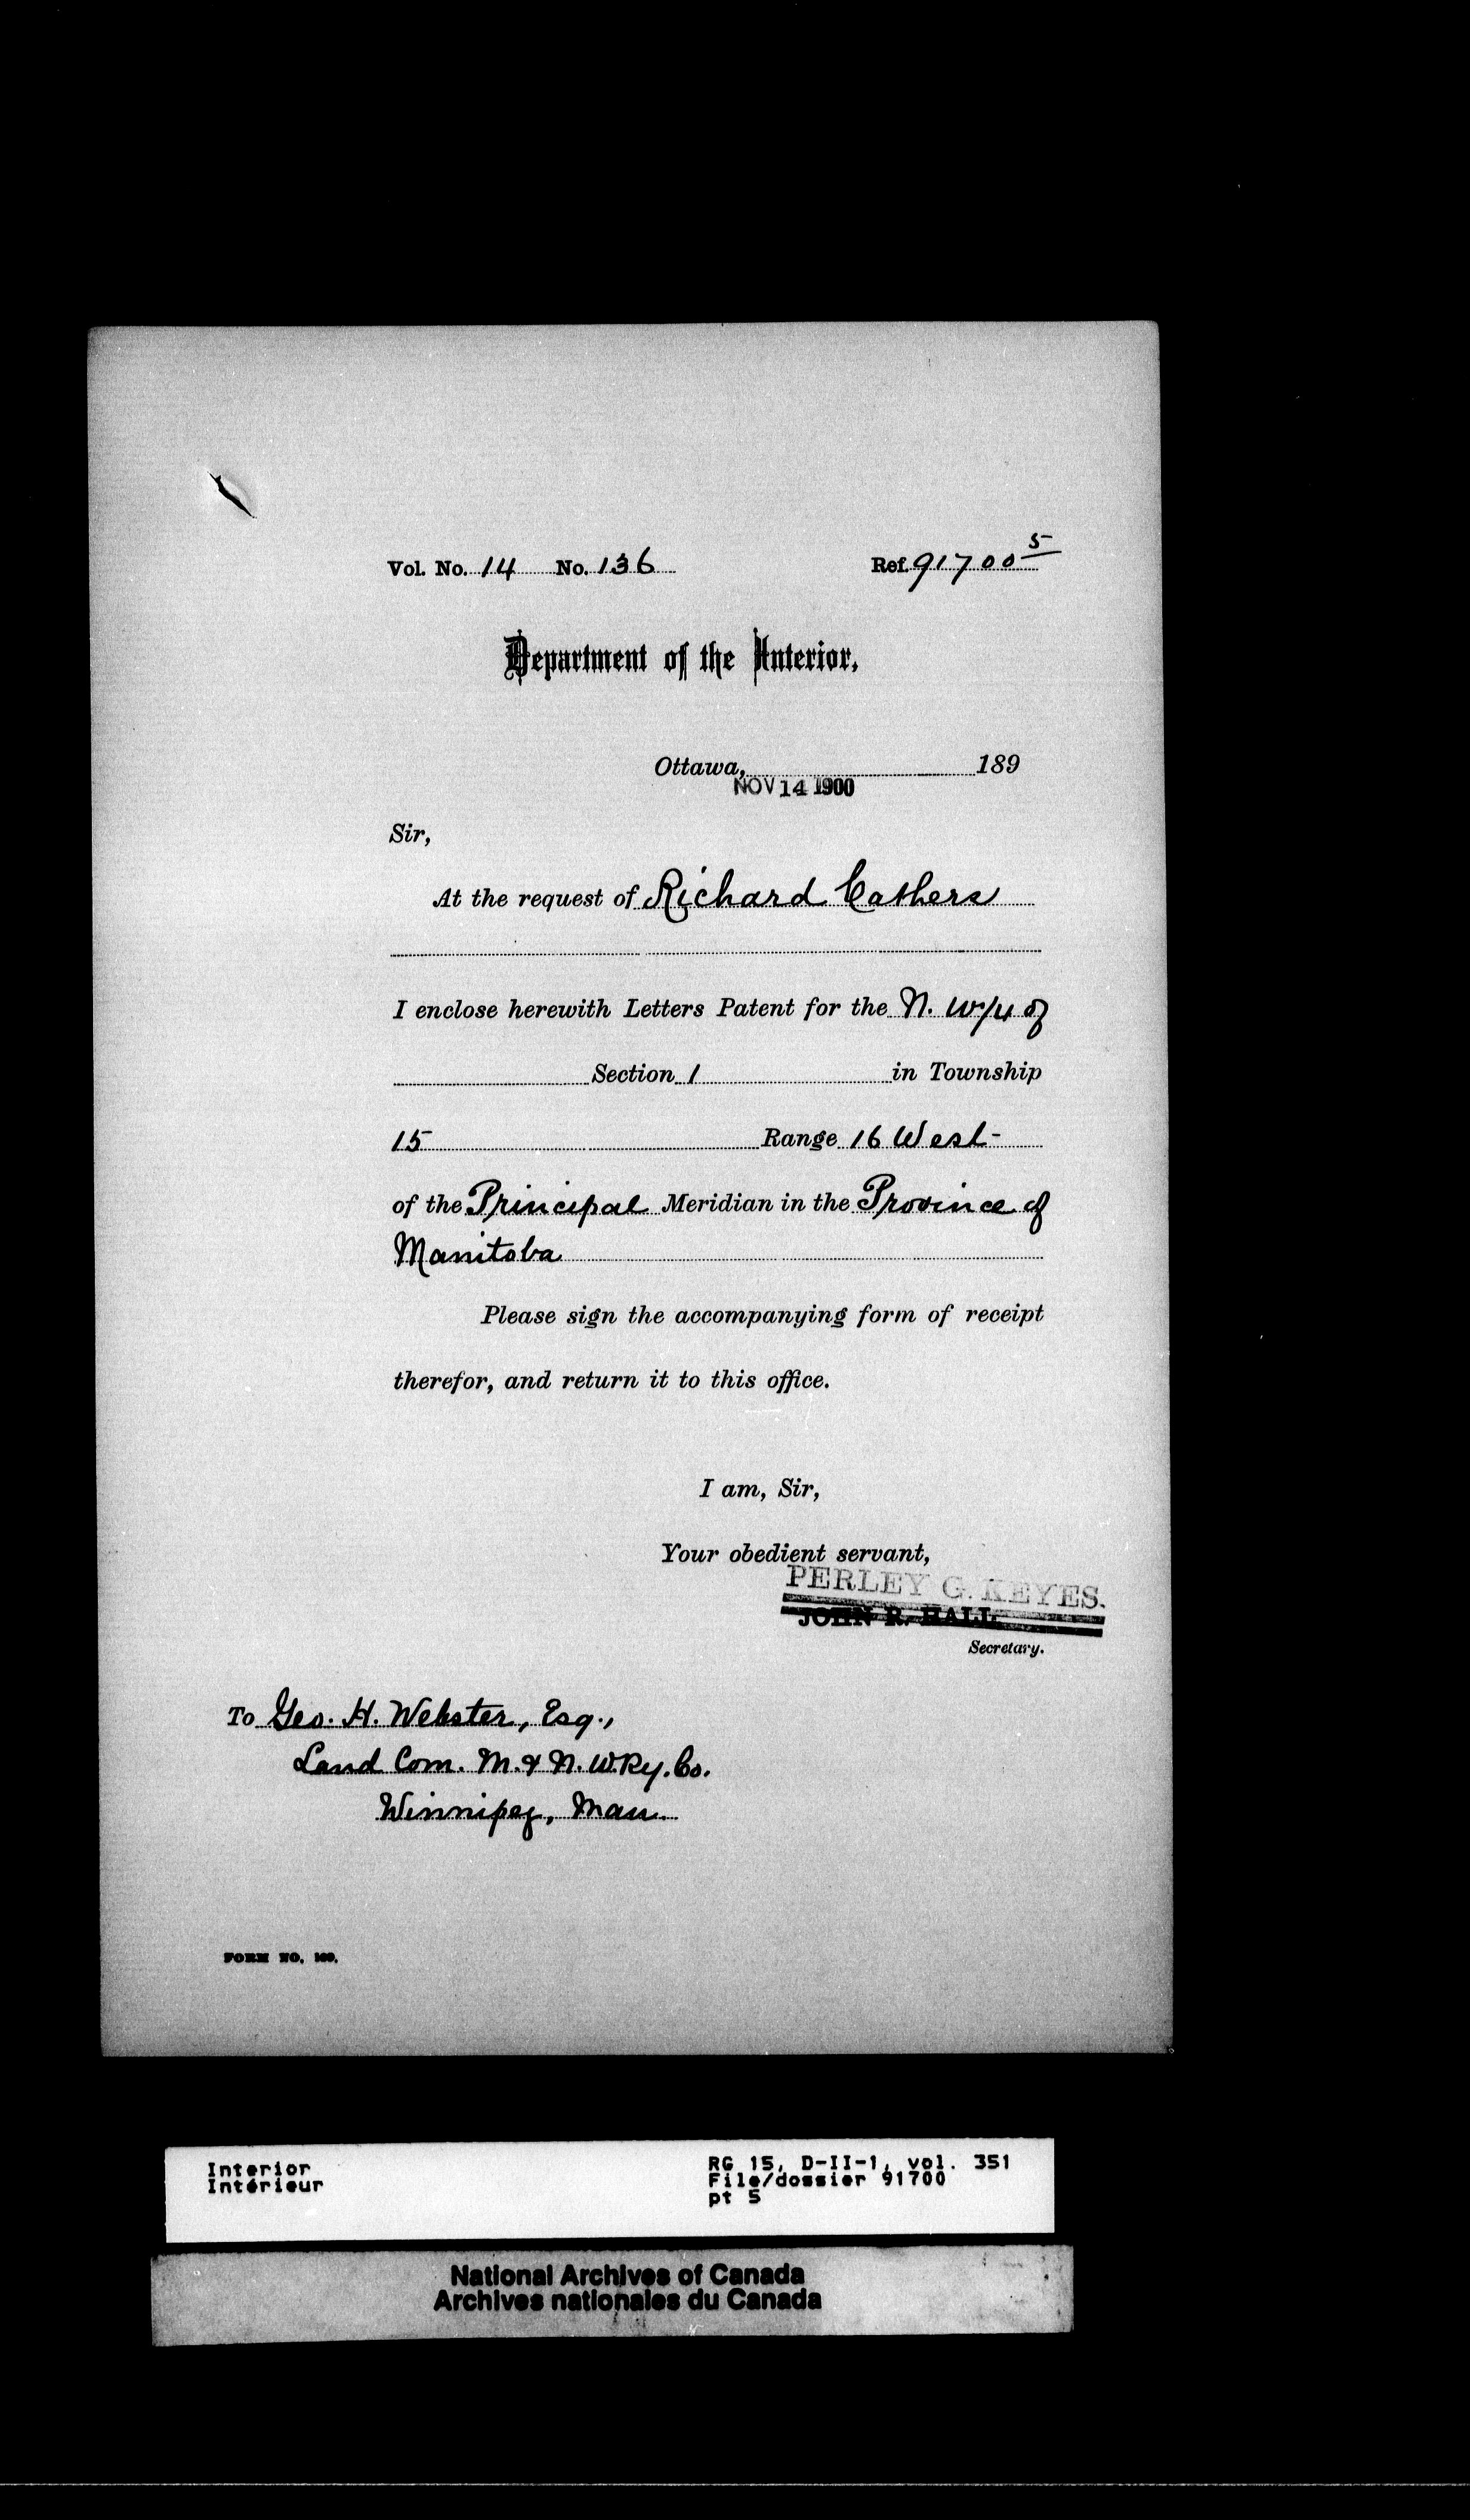 Vol. No. 14 No. 136 Ref. 91700 5
Department of the Interior,
Ottawa, 189
NOV 14 1900
Sir,
At the request of Richard Cathers
I enclose herewith Letters Patent for the N. W/4 of
Section 1 in Township
15 Range 16 West
of the Principal Meridian in the Province of
Manitoba
Please sign the accompanying form of receipt
therefor, and return it to this office.
I am, Sir,
Your obedient servant,
PERLEY G. KEYES.
JOHN R. HALL
Secretary.
To Geo. H. Webster, Esq.,
Land Com. M. & N. W. Ry. Co.
Winnipeg, Man.
FORM NO. 169.
Interior
Intérieur
RG 15, D-II-1, vol. 351
File/dossier 91700
pt 5
National Archives of Canada
Archives nationales du Canada